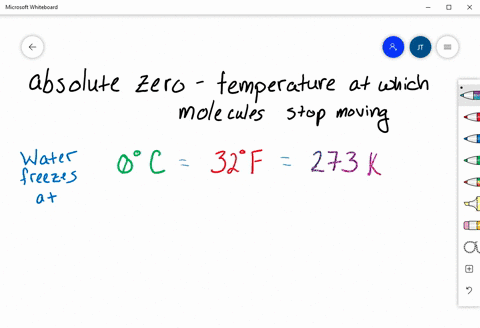 Microsoft Whiteboard
JT
absolute zero - temperature at which
molecules stop moving
Water
freezes
at
0°C = 32°F = 273 K